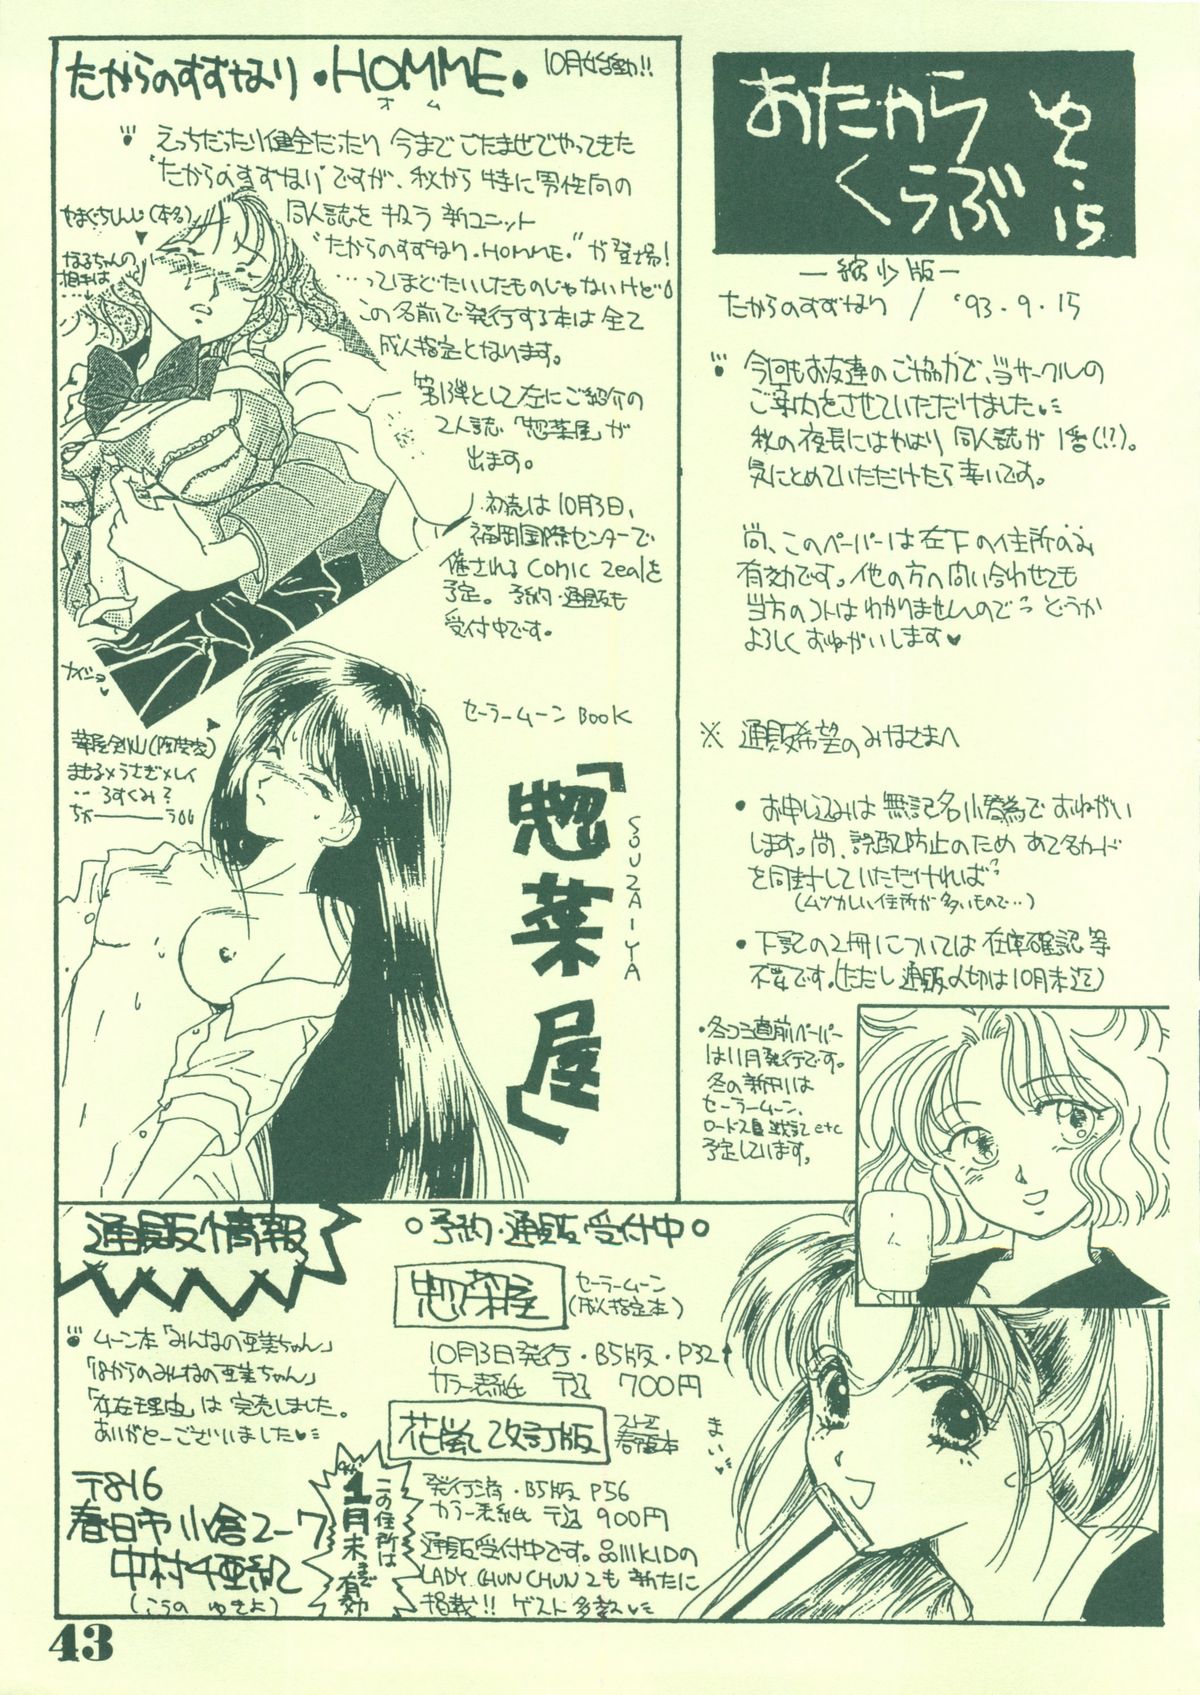 おたから
くらぶ
ゆ・15
―縮少版―
たからのすずなり / '93.9.15
今回もお友達のご協力で、当サークルの
ご案内をさせていただけました
秋の夜長にはやはり同人誌が1番(!?)。
気にとめていただけたら幸いです。
尚、このペーパーは左下の住所のみ
有効です。他の方へ問い合わせても
当方のコトはわかりませんので どうか
よろしくおねがいします♥
※ 通販希望のみなさまへ
・お申し込みは無記名小為替でおねがい
します。尚、誤配防止のため あて名カード
を同封していただければ
(ムツカしい住所が多いもので…)
・下記の2冊については在庫確認等
不要です。(ただし通販〆切は10月末迄)
・冬コミ直前ペーパー
は11月発行です。
冬の新刊は
セーラームーン、
ロードス島戦記 etc
予定しています。
たからのすずなり・HOMME・
オム
10月始動!!
えっちだったり健全だったり 今までごたまぜでやってきた
"たからのすずなり"ですが、秋から特に男性向の
同人誌を扱う新ユニット
"たからのすずなり・HOMME"が登場!
…ってほどたいしたものじゃないけど
この名前で発行する本は全て
成人指定となります。
第1弾として左にご紹介の
2人誌「惣菜屋」が
出ます。
初売は10月3日、
福岡国際センターで
催されるComic Zealを
予定。予約・通販も
受付中です。
(本名)
はるちゃんの
相手は
……
ナイショ
まもる×うさぎ×レイ
‥ろすくみ?
セーラームーン BOOK
「惣菜屋」
SOUZAIYA
通販情報
ムーン本「みんなの亜美ちゃん」
「だからのみんなの亜美ちゃん」
「存在理由」は完売しました。
ありがとーございました
〒816
春日市小倉2-7
中村千亜紀
(こうの ゆきよ)
この住所は
'94
1月末まで有効
○予約・通販受付中○
惣菜屋
セーラームーン
(成人指定本)
10月3日発行・B5版・P32
カラー表紙 〒込 700円
花嵐 改訂版
ストⅡ
春麗本
発行済・B5版 P56
カラー表紙 〒込 900円
通販受付中です。品川KIDの
LADY CHUN CHUN 2も新たに
掲載!! ゲスト多数
まいど
43